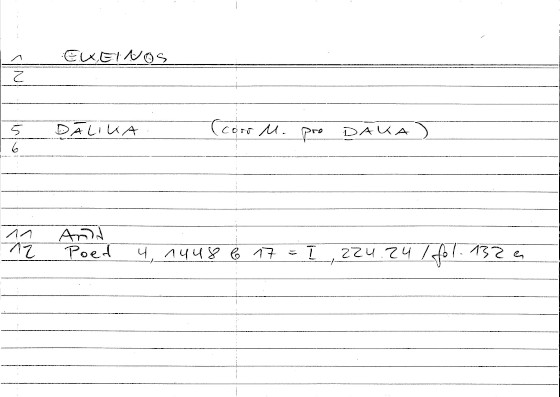 1 EKEINOS
2
5 DĀLIKA (corr M. pro DĀKA)
6
11
12 Poet 4, 1448 b 17 = I, 224.24 / fol. 132 a